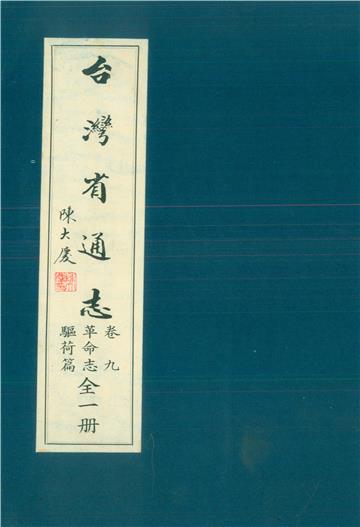 台灣省通志
陳大慶
卷九
革命志
驅荷篇
全一册